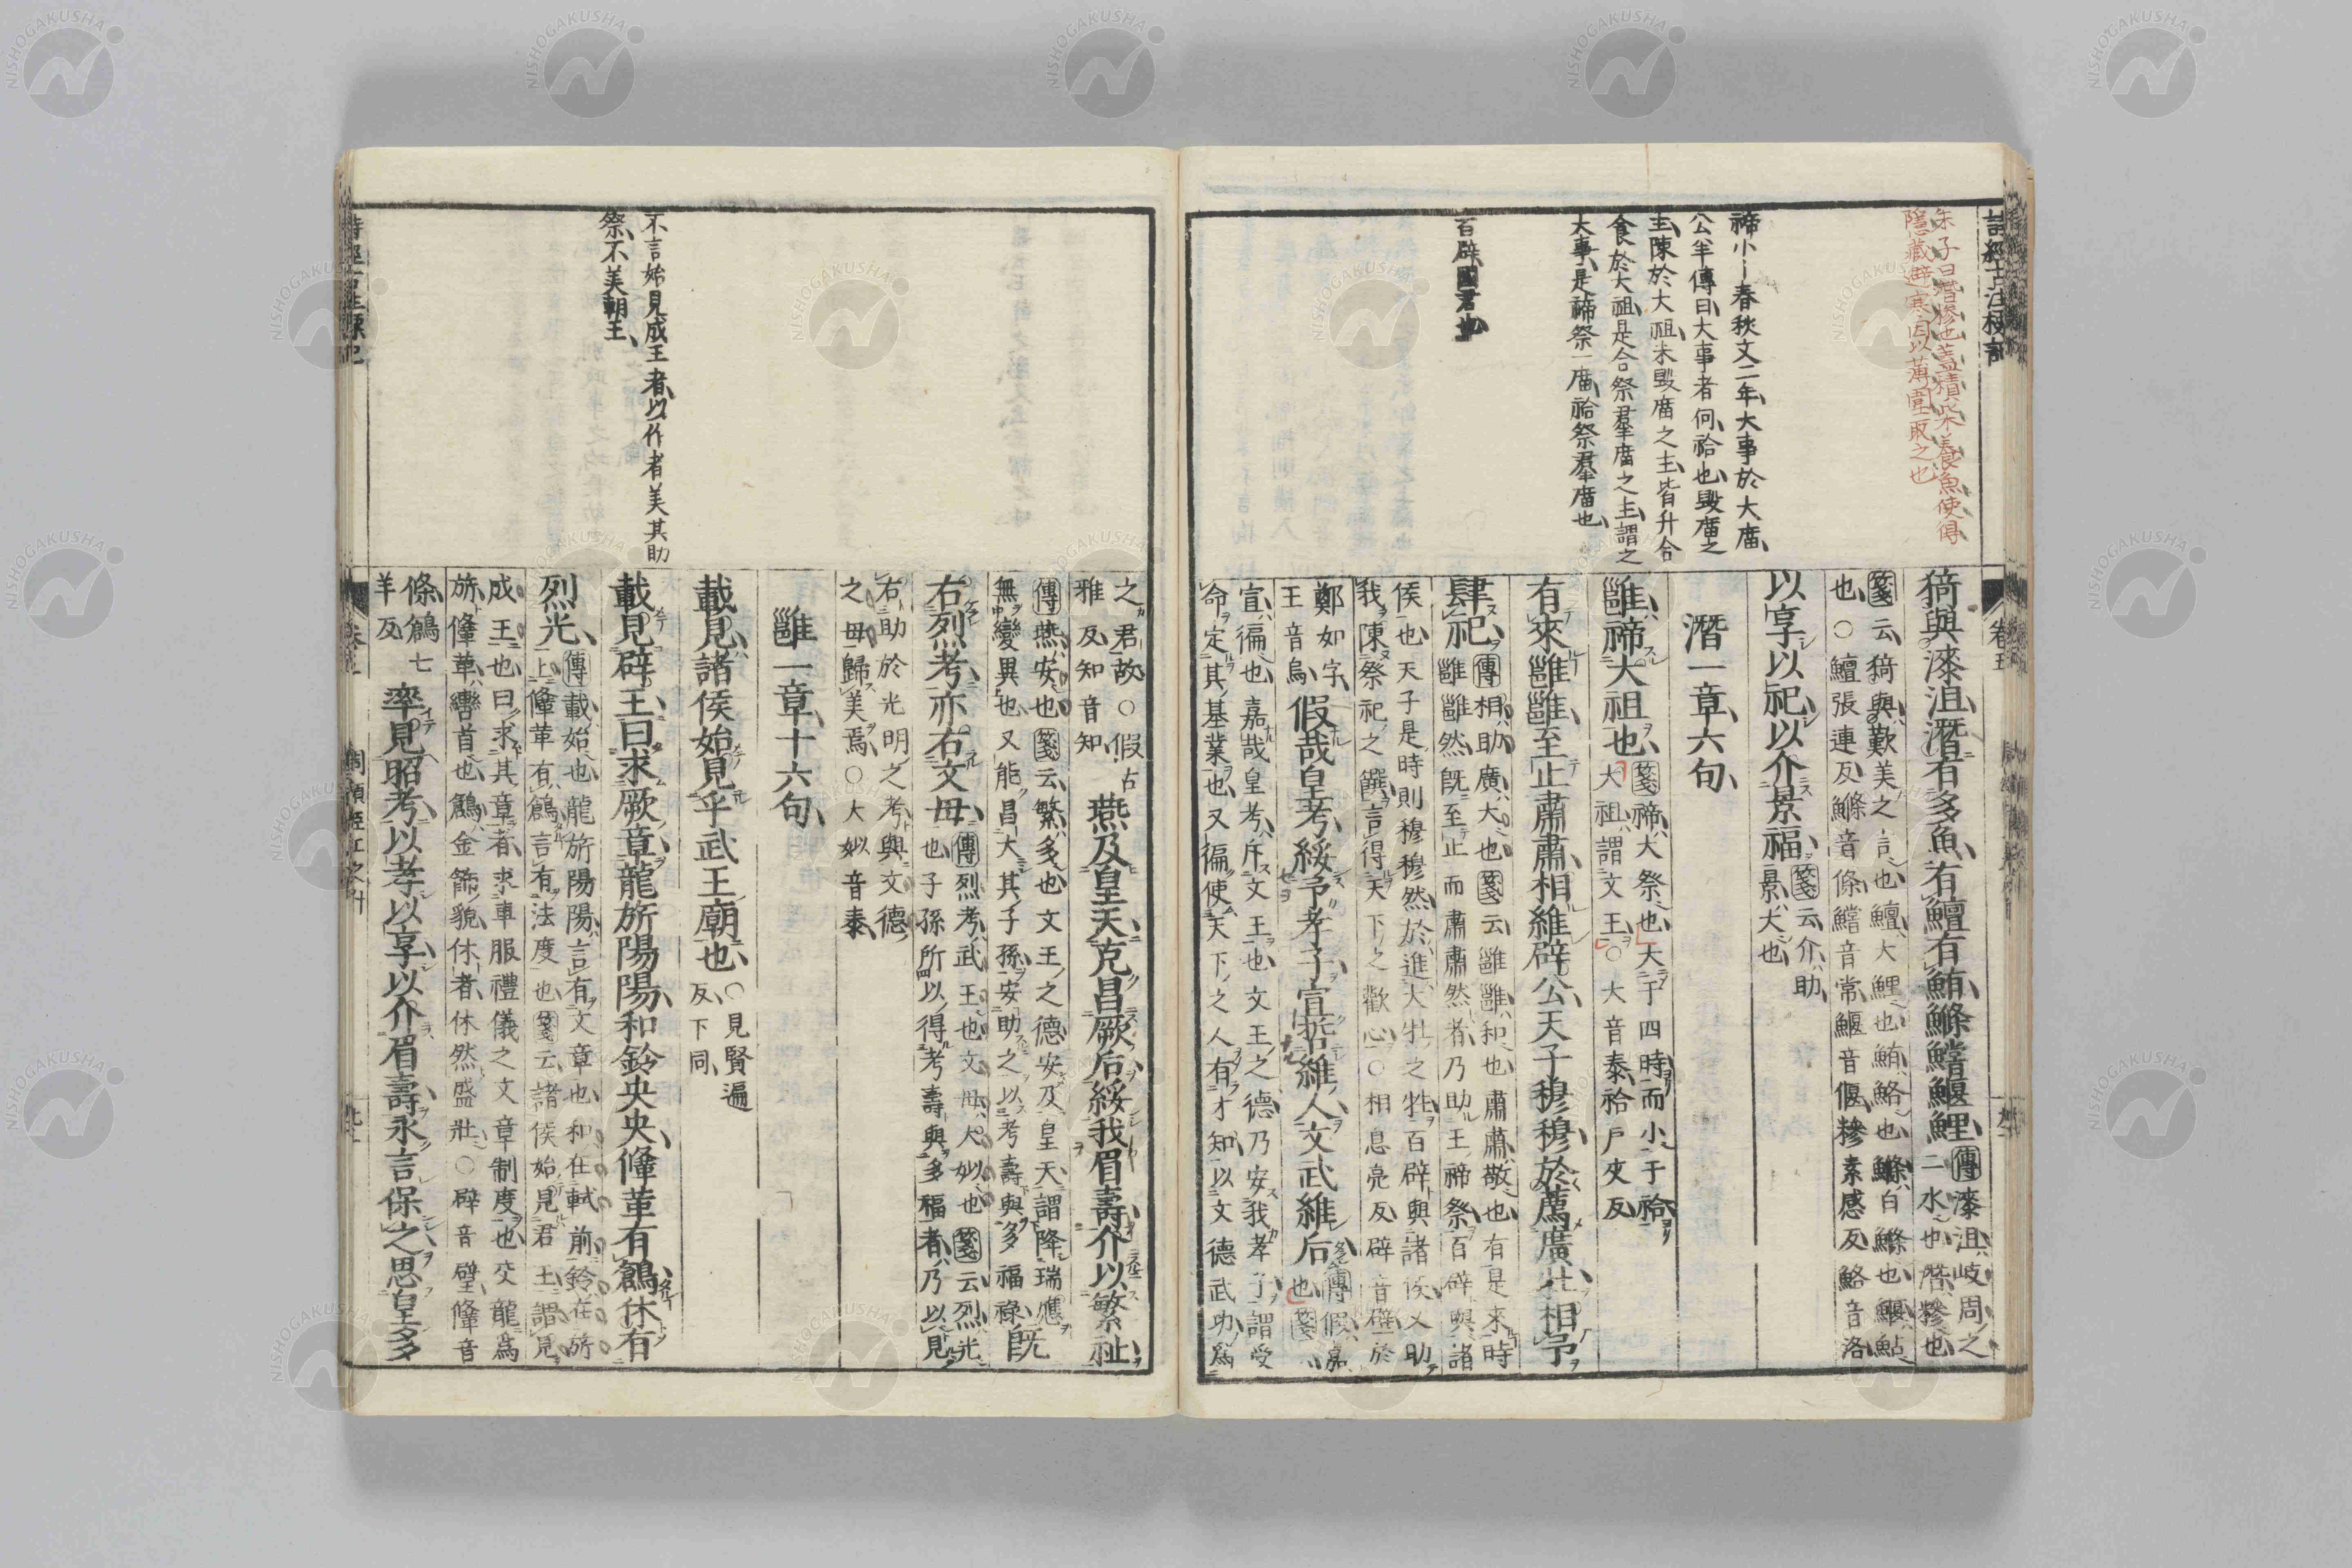 詩經古注標記
朱子曰潛槮也蓋積柴養魚使得
隱藏避寒因以薄圍取之也
禘小｜春秋文二年大事於大廟
公羊傳曰大事者何祫也毀廟之
主陳於大祖未毀廟之主皆升合
食於大祖是合祭羣廟之主謂之
大事是禘祭一廟祫祭羣廟也
百辟國君也
卷五
猗與漆沮潛有多魚有鱣有鮪鰷鱨鰋鯉傳漆沮岐周之
二水也潛糝也
箋云猗與歎美之言也鱣大鯉也鮪鮥也鰷白鰷也鰋鮎
也○鱣張連反鰷音條鱨音常鰋音偃糝素感反鮥音洛
以享以祀以介景福箋云介助
景大也
潛一章六句
雝禘大祖也箋禘大祭也大于四時而小于祫
大祖謂文王○大音泰祫戶夾反
有來雝雝至止肅肅相維辟公天子穆穆於薦廣牡相予
肆祀傳相助廣大也箋云雝雝和也肅肅敬也有是來時
雝雝然既至止而肅肅然者乃助王禘祭百辟與諸
侯也天子是時則穆穆然於進大牡之牲百辟與諸侯又助
我陳祭祀之饌言得天下之歡心○相息亮反辟音璧於
鄭如字
王音烏
假哉皇考綏予孝子宣哲維人文武維后傳假嘉
也箋
宣徧也嘉哉皇考斥文王也文王之德乃安我孝子謂受
命定其基業也又徧使天下之人有才知以文德武功爲
之君故○假古
雅反知音知
燕及皇天克昌厥后綏我眉壽介以繁祉
傳燕安也箋云繁多也文王之德安及皇天謂降瑞應
無變異也又能昌大其子孫安助之以考壽與多福祿
既
右烈考亦右文母傳烈考武王也文母大姒也箋云烈光
也子孫所以得考壽與多福者乃以見
右助於光明之考與文德
之母歸美焉○大姒音泰
雝一章十六句
載見諸侯始見乎武王廟也○見賢遍
反下同
不言始見成王者以作者美其助
祭不美朝王
載見辟王曰求厥章龍旂陽陽和鈴央央鞗革有鶬休有
烈光傳載始也龍旂陽陽言有文章也和在軾前鈴在旂
上鞗革有鶬言有法度也箋云諸侯始見君王謂見
成王也曰求其章者求車服禮儀之文章制度也交龍爲
旂鞗革轡首也鶬金飾貌休者休然盛壯○辟音璧鞗音
條鶬七
羊反
率見昭考以孝以享以介眉壽永言保之思皇多